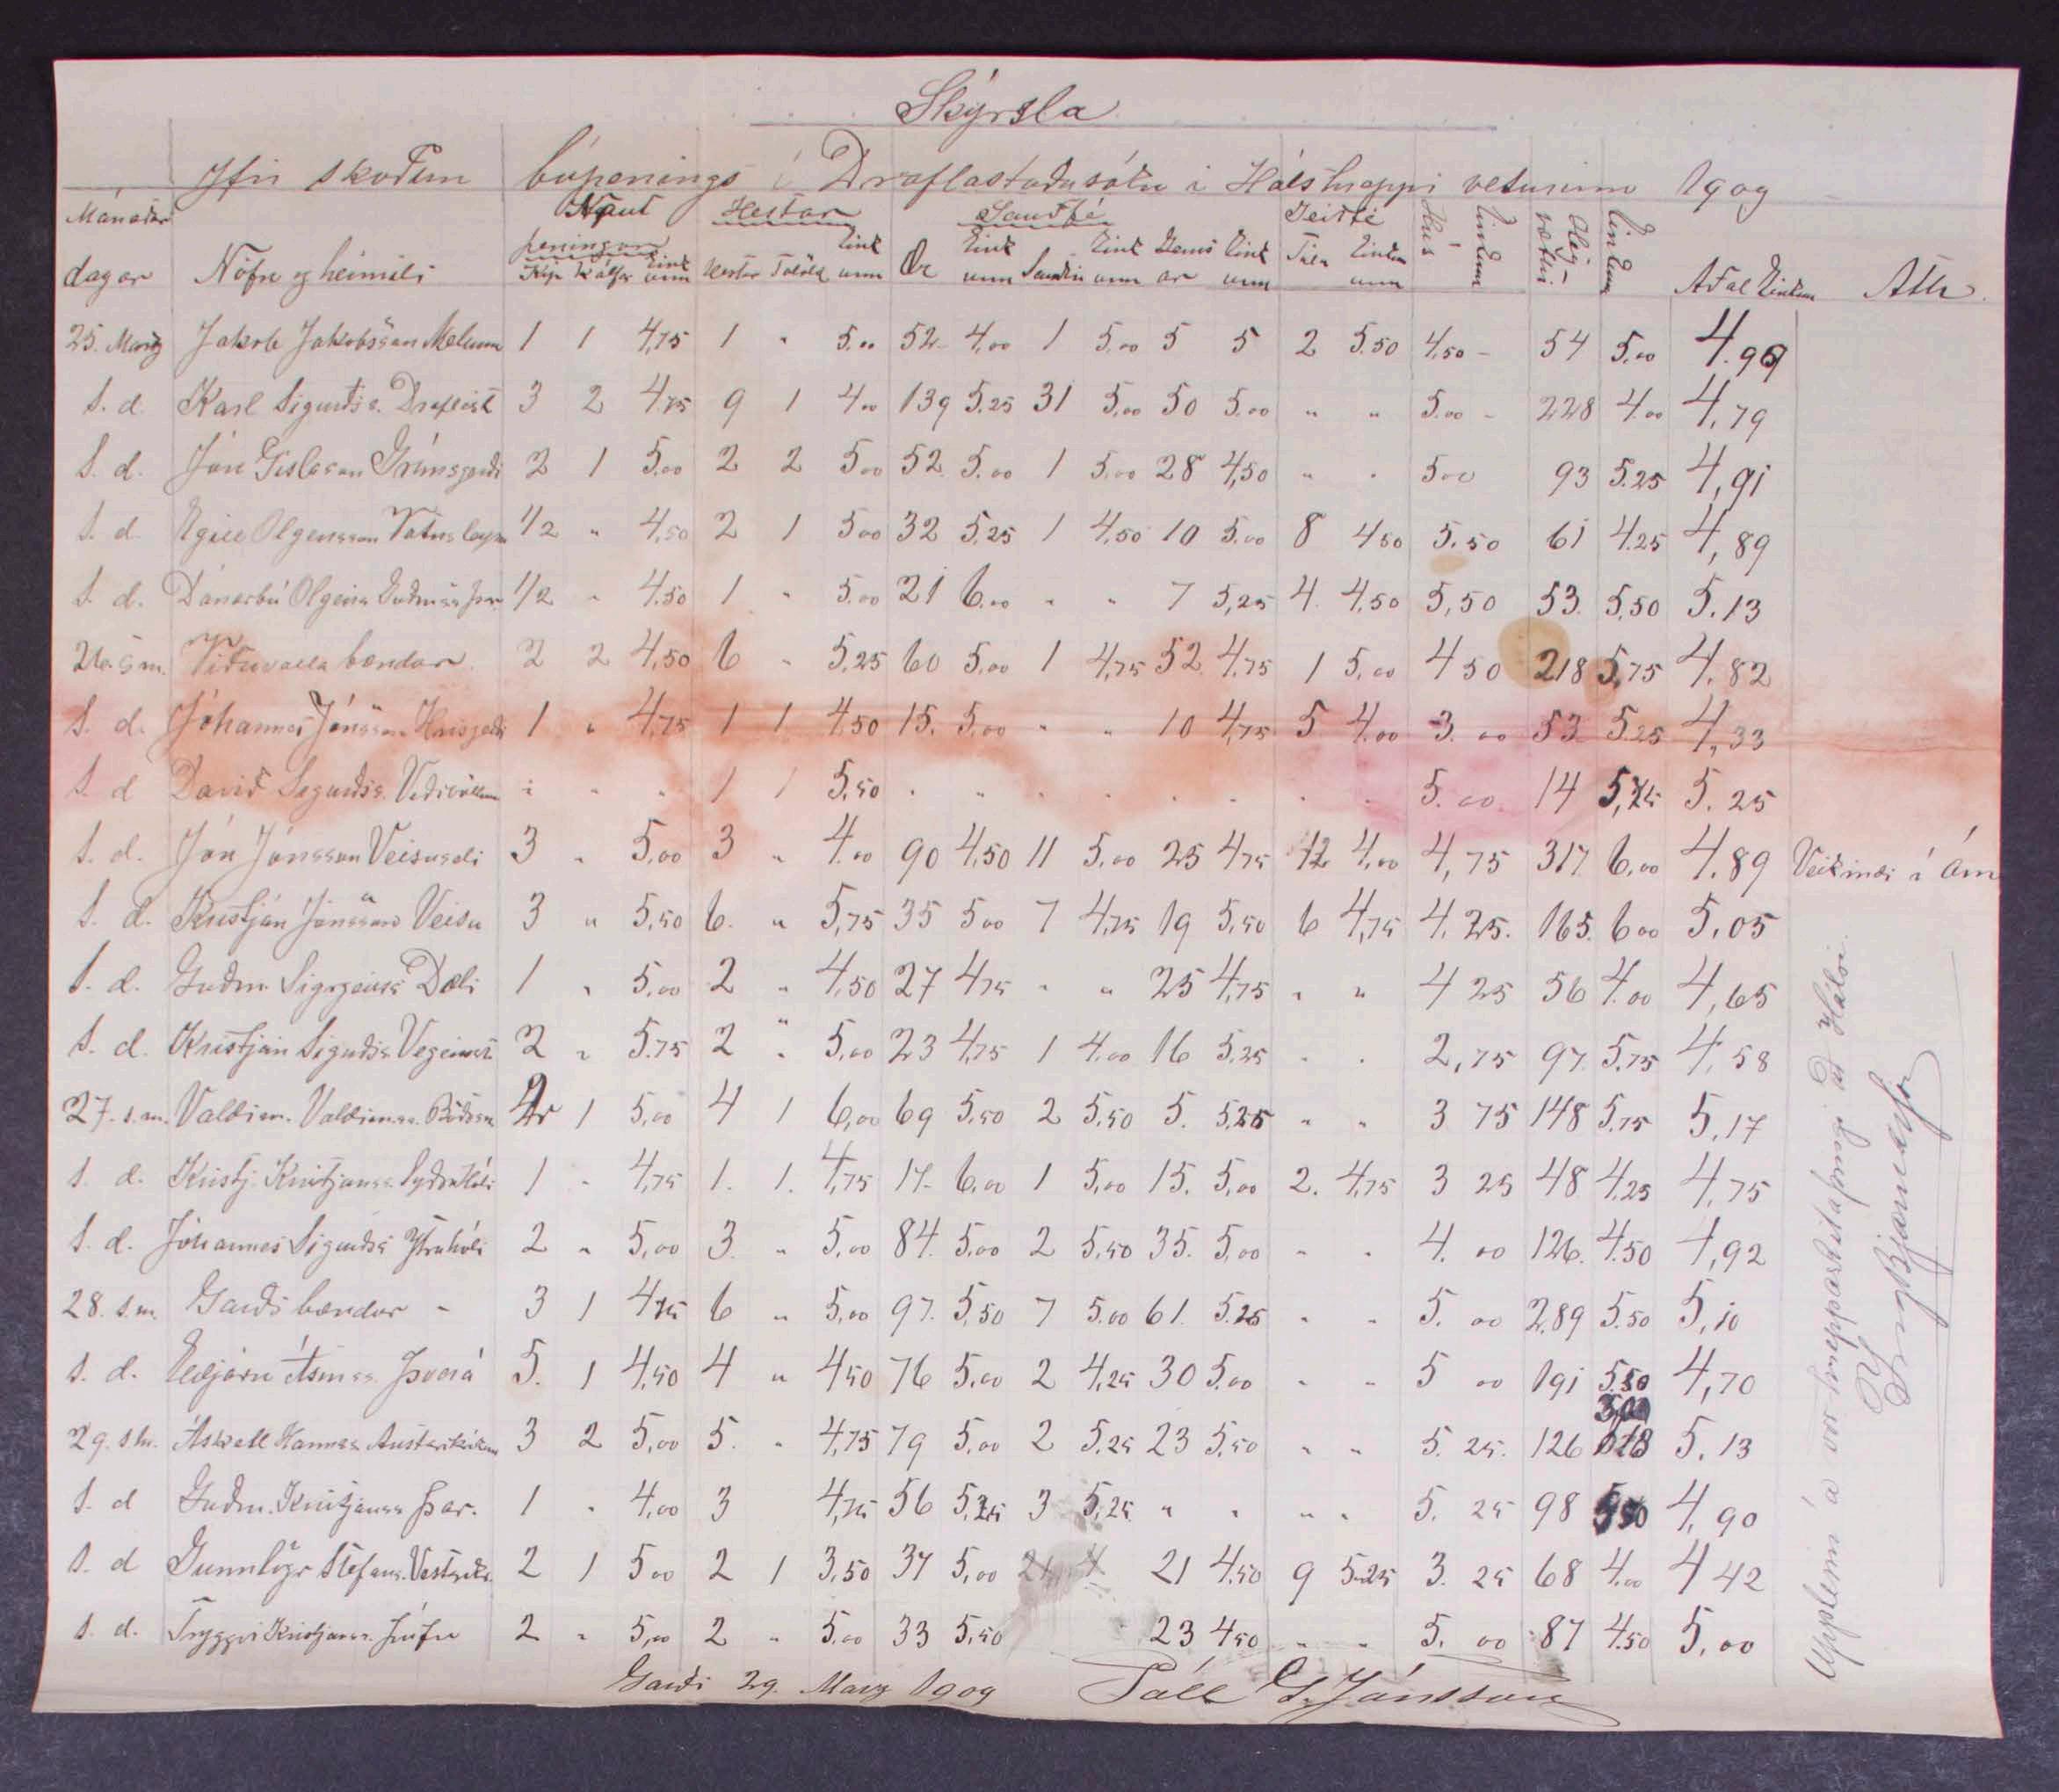 Skýrsla
Yfir skoðun búpenings í Draflastaðasókn í Hálshreppi veturinn 1909
Mánaðar Naut Hestar Sauðfé Geitfé Hús Einkunn Einkunn
dagar Nöfn og heimili peningur Kýr Kálfar Eink unn Hestar Eink unn Ær Eink unn Sauðir Eink unn Eink unn Einkun unn Aðal Einkun Ath.
25. Marz Jakob Jakobsson Melum 1 1 4,75 1 " 5.00 52 4,00 1 5,00 5 5 2 5.50 4,50 - 54 5,00 4.99
S. d. Karl Sigurðss. Draflast 3 2 4.75 9 1 4.00 139 5.25 31 5,00 50 5.00 " " 5.00 - 228 4.00 4,79
S. d. Jón Gíslason Grímsgerði 2 1 5.00 2 2 5.00 52 5.00 1 5,00 28 4,50 " " 5.00 93 5.25 4,91
S. d. Egill Olgeirsson 1/2 " 4,50 2 1 5.00 32 5,25 1 4,50 10 5.00 8 4.50 5.50 61 4.25 4,89
S. d. Dánarbú Olgeirs 1/2 " 4.50 1 " 5.00 21 6.00 " " 7 5,25 4. 4,50 5,50 53. 5,50 5.13
26. s m. Víðivalla bændur 2 2 4,50 6 " 5,25 60 5,00 1 4,75 52 4,75 1 5,00 4 50 218 5,75 4,82
S. d. Jóhannes Jónsson 1 " 4,75 1 1 4,50 15. 5,00 " " 10 4,75 5 4.00 3.00 53 5.25 4,33
S. d Davíð Sigurðss. " " " 1 1 5,50 " " " " " " " " 5.00. 14 5,75 5.25
S. d. Jón Jónsson Veisuseli 3 " 5,00 3 " 4.00 90 4,50 11 5,00 25 4,75 12 4,00 4,75 317 6,00 4.89 Veikindi í ám
S. d. Kristján Jónsson Veisu 3 " 5,50 6. " 5,75 35 5.00 7 4,75 19 5,50 6 4,75 4.25. 165. 6.00 5,05
S. d. Guðm. Sigurgeirss Dæli 1 " 5,00 2 " 4,50 27 4,75 " " 25 4,75 " " 4 25 56 4.00 4,65
S. d. Kristján Sigurðss 2 " 5.75 2 " 5,00 23 4,75 1 4.00 16 5,25 " " 2,75 97. 5.75 4,58
27. s. m. Valdim. Valdimarss. 1 5,00 4 1 6,00 69 5,50 2 5,50 5. 5,25 " " 3 75 148 5,75 5,17
S. d. Kristj. Kristjánss. Syðra Hóli 1 " 4,75 1. 1. 4,75 17 6,00 1 5,00 15. 5,00 2. 4,75 3 25 48 4,25 4,75
S. d. Jóhannes Sigurðss Ytrahóli 2 " 5,00 3. " 5,00 84. 5.00 2 5,50 35. 5,00 " " 4.00 126. 4.50 4,92
28. s. m. Garðs bændur - 3 1 4,75 6 " 5,00 97. 5,50 7 5.00 61. 5.25 " " 5.00 289 5.50 5,10
S. d. Þverá 5. 1 4,50 4 " 4.50 76 5,00 2 4,25 30 5.00 " " 5 00 191 5.50 4,70
29. s. m. Áskell Hanness. 3 2 5,00 5. " 4,75 79 5,00 2 5.25 23 5,50 " " 5.25. 126 5.13
S. d Guðm. Kristjánss Þar. 1 " 4,00 3 4,75 56 5,25 3 5,25 " " " " 5. 25 98 550 4,90
S. d Gunnlögr Stefáns. 2 1 5.00 2 1 3,50 37 5,00 21 4.50 9 5.25 3. 25 68 4.00 4 42
S. d. Tryggvi Kristjánss. 2 " 5,00 2 " 5.00 33 5,50 " 23 4.50 " " 5. 00 87 4.50 5,00
Garði 29. Marz 1909 Páll G. Jónsson
Upplesin á vor hreppaskilaþingi að Hálsi.